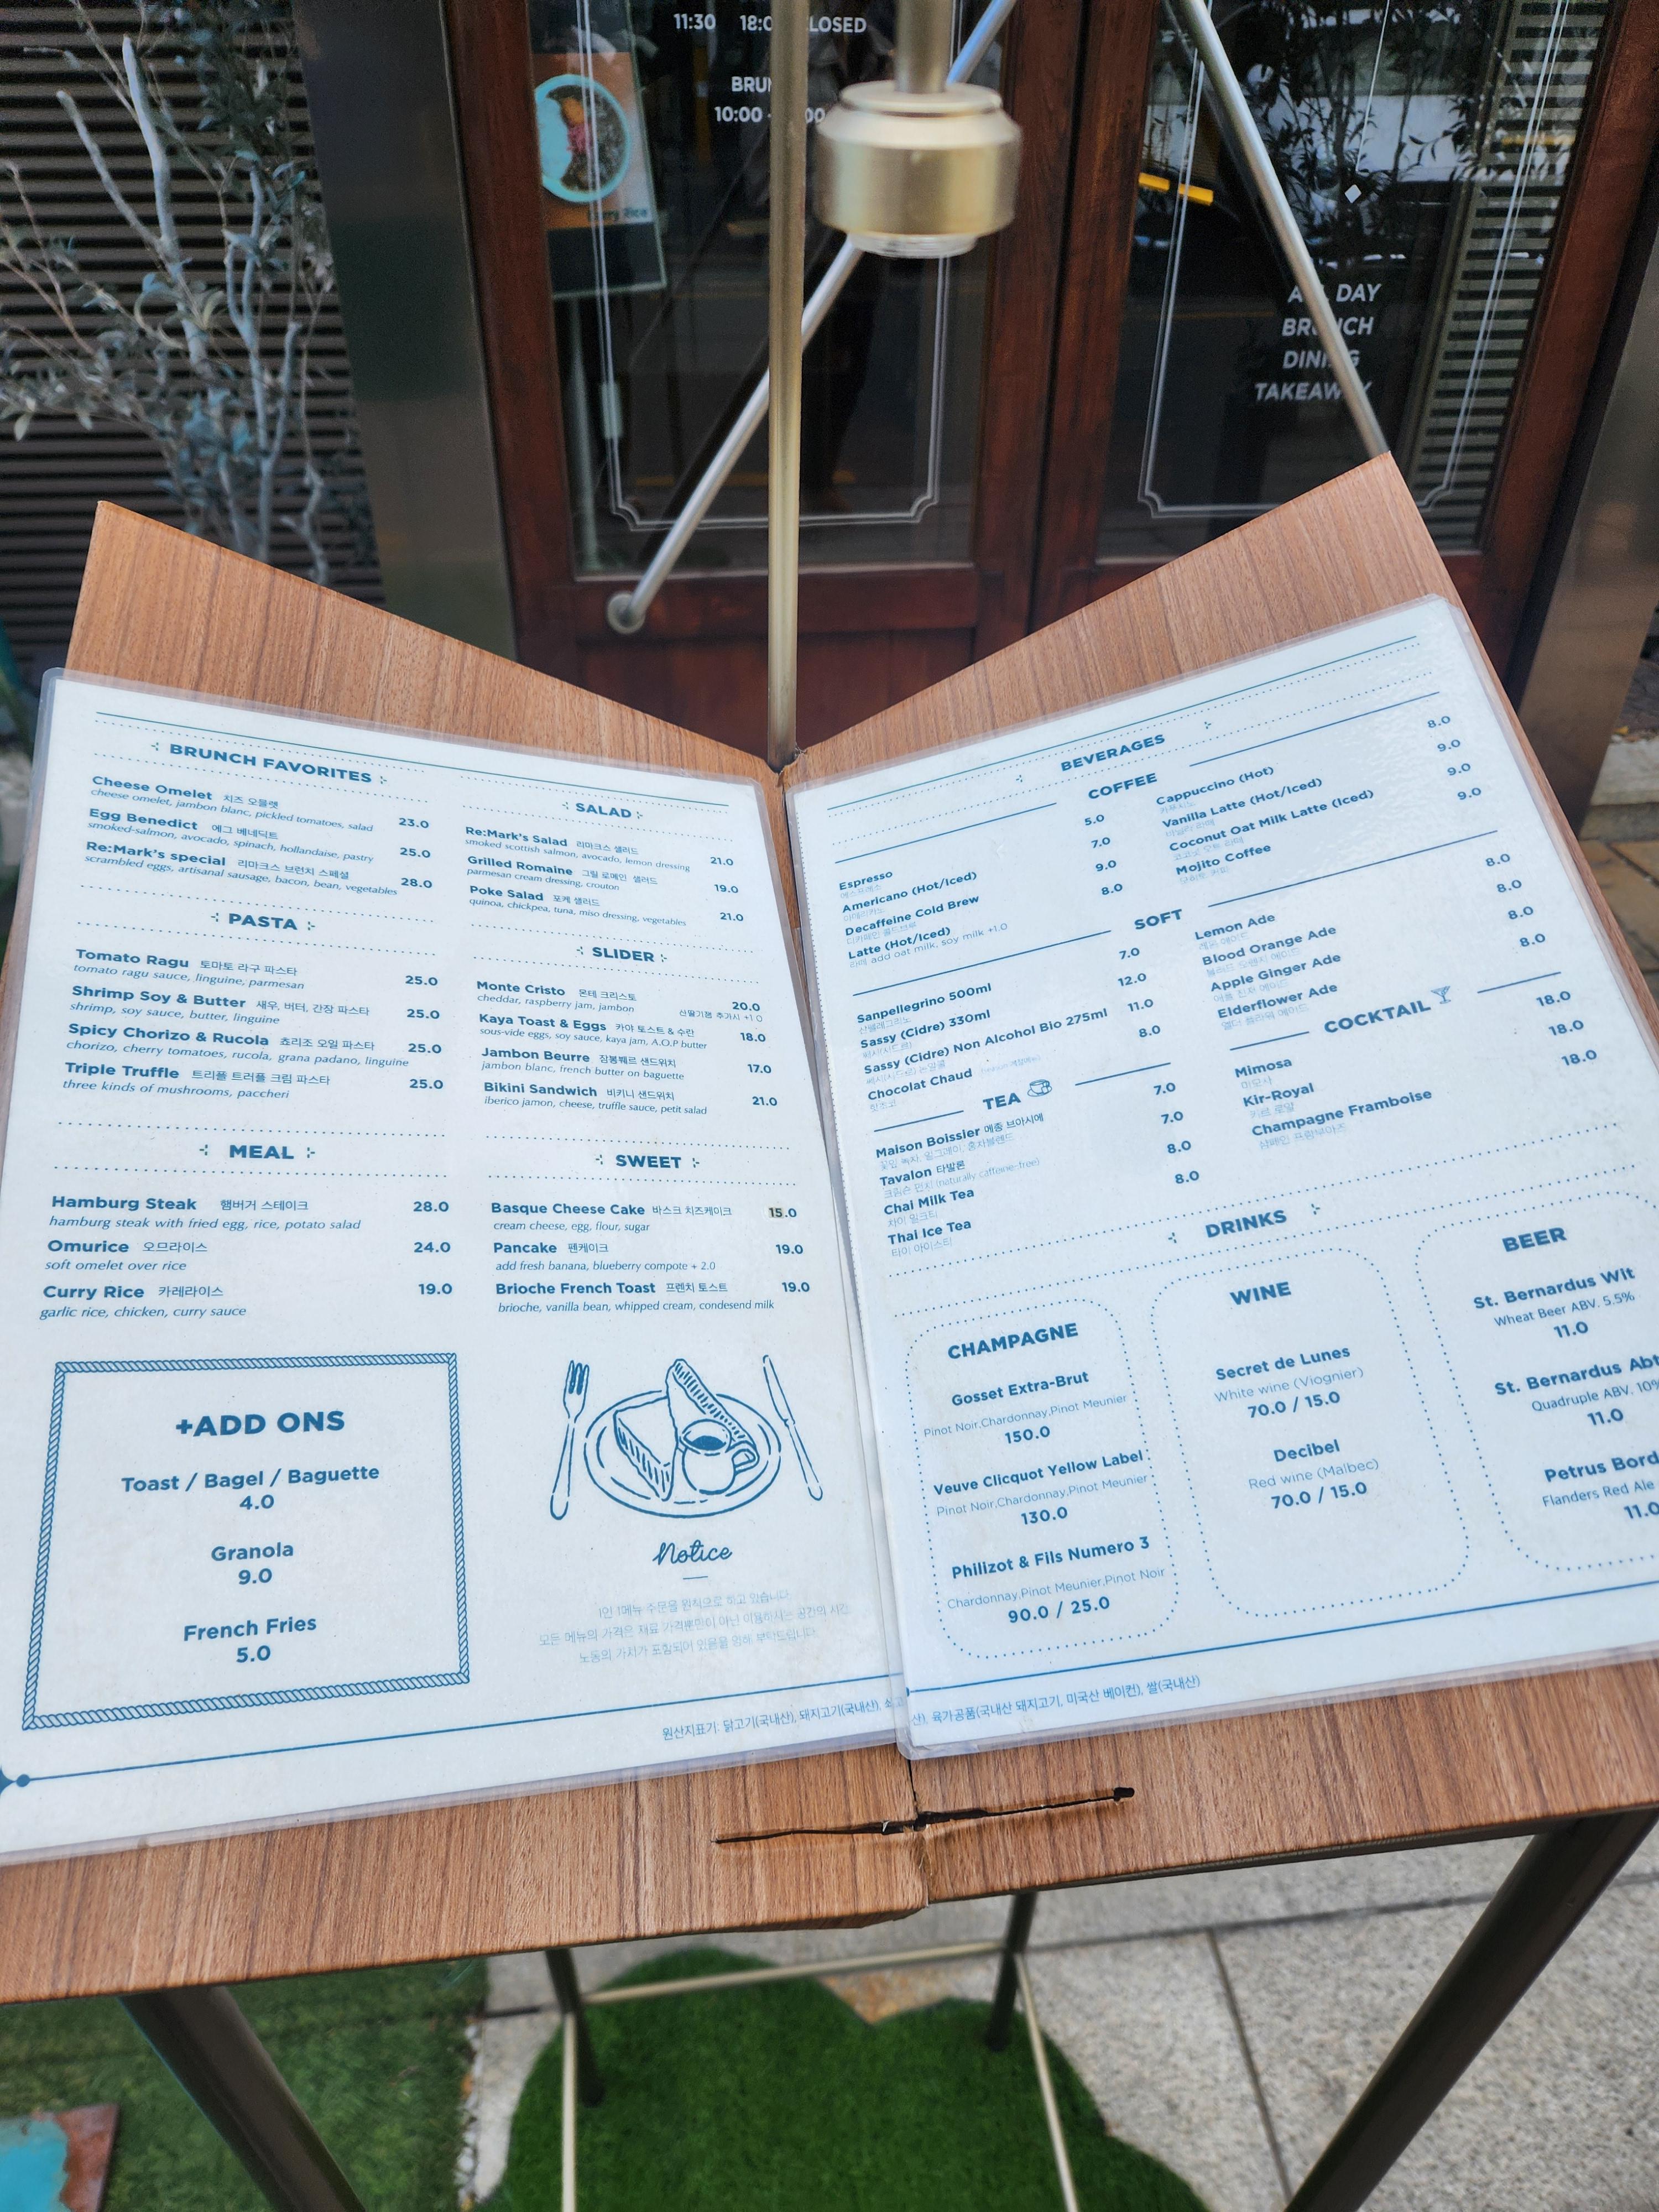 11:30
Curry Rice
DAY
BRUNCH
DINING
TAKEAWAY
BRUNCH FAVORITES
Cheese Omelet 치즈 오믈렛
cheese omelet, jambon blanc, pickled tomatoes, salad 23.0
Egg Benedict 에그 베네딕트
smoked-salmon, avocado, spinach, hollandaise, pastry 25.0
Re:Mark's special 리마크스 브런치 스페셜
scrambled eggs, artisanal sausage, bacon, bean, vegetables 28.0
PASTA
Tomato Ragu 토마토 라구 파스타
tomato ragu sauce, linguine, parmesan 25.0
Shrimp Soy & Butter 새우, 버터, 간장 파스타
shrimp, soy sauce, butter, linguine 25.0
Spicy Chorizo & Rucola 쵸리조 오일 파스타 25.0
chorizo, cherry tomatoes, rucola, grana padano, linguine
Triple Truffle 트리플 트러플 크림 파스타 25.0
three kinds of mushrooms, paccheri
MEAL
Hamburg Steak 햄버거 스테이크 28.0
hamburg steak with fried egg, rice, potato salad
Omurice 오므라이스 24.0
soft omelet over rice
Curry Rice 카레라이스 19.0
garlic rice, chicken, curry sauce
+ADD ONS
Toast / Bagel / Baguette
4.0
Granola
9.0
French Fries
5.0
SALAD
Re:Mark's Salad 리마크스 샐러드
smoked scottish salmon, avocado, lemon dressing 21.0
Grilled Romaine 그릴 로메인 샐러드
parmesan cream dressing, crouton 19.0
Poke Salad 포케 샐러드
quinoa, chickpea, tuna, miso dressing, vegetables 21.0
SLIDER
Monte Cristo 몬테 크리스토 20.0
cheddar, raspberry jam, jambon 산딸기잼 추가시 +1.0
Kaya Toast & Eggs 카야 토스트 & 수란
sous-vide eggs, soy sauce, kaya jam, A.O.P butter 18.0
Jambon Beurre 잠봉뵈르 샌드위치
jambon blanc, french butter on baguette 17.0
Bikini Sandwich 비키니 샌드위치
iberico jamon, cheese, truffle sauce, petit salad 21.0
SWEET
Basque Cheese Cake 바스크 치즈케이크 15.0
cream cheese, egg, flour, sugar
Pancake 팬케이크 19.0
add fresh banana, blueberry compote + 2.0
Brioche French Toast 프렌치 토스트 19.0
brioche, vanilla bean, whipped cream, condesend milk
Notice
1인 1메뉴 주문을 원칙으로 하고 있습니다.
모든 메뉴의 가격은 재료 가격뿐만이 아닌 이용하시는 공간의 시간,
노동의 가치가 포함되어 있음을 양해 부탁드립니다.
원산지표기: 닭고기(국내산), 돼지고기(국내산),
BEVERAGES
COFFEE
Espresso 5.0
에스프레소
Americano (Hot/Iced) 7.0
아메리카노
Decaffeine Cold Brew 9.0
디카페인 콜드브루
Latte (Hot/Iced) 8.0
라떼 add oat milk, soy milk +1.0
Cappuccino (Hot) 8.0
카푸치노
Vanilla Latte (Hot/Iced) 9.0
바닐라 라떼
Coconut Oat Milk Latte (Iced) 9.0
코코넛 오트 라떼
Mojito Coffee 9.0
모히토 커피
SOFT
Sanpellegrino 500ml 7.0
산펠레그리노
Sassy (Cidre) 330ml 12.0
Sassy (Cidre) Non Alcohol Bio 275ml 11.0
Chocolat Chaud 8.0
핫초코
Lemon Ade 8.0
레몬 에이드
Blood Orange Ade 8.0
블러드 오렌지 에이드
Apple Ginger Ade 8.0
애플 진저 에이드
Elderflower Ade 8.0
엘더 플라워 에이드
TEA
Maison Boissier 메종 브아시에 7.0
Tavalon 타발론 7.0
(naturally caffeine-free)
Chai Milk Tea 8.0
차이 밀크티
Thai Ice Tea 8.0
타이 아이스티
COCKTAIL
Mimosa 18.0
미모사
Kir-Royal 18.0
키르 로얄
Champagne Framboise 18.0
샴페인 프람부아즈
DRINKS
CHAMPAGNE
Gosset Extra-Brut
Pinot Noir,Chardonnay,Pinot Meunier
150.0
Veuve Clicquot Yellow Label
Pinot Noir,Chardonnay,Pinot Meunier
130.0
Philizot & Fils Numero 3
Chardonnay,Pinot Meunier,Pinot Noir
90.0 / 25.0
WINE
Secret de Lunes
White wine (Viognier)
70.0 / 15.0
Decibel
Red wine (Malbec)
70.0 / 15.0
BEER
St. Bernardus Wit
Wheat Beer ABV. 5.5%
11.0
St. Bernardus Abt
Quadruple ABV. 10%
11.0
Petrus Bord
Flanders Red Ale
11.0
산), 육가공품(국내산 돼지고기, 미국산 베이컨), 쌀(국내산)